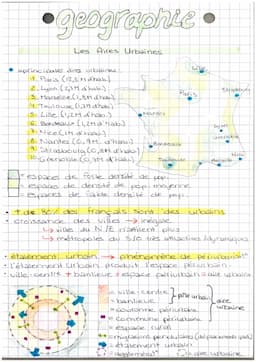 geographie
Les Aires Urbaines
principales aires urbaines:
1. Paris (12,5M d'hab.)
2. Lyon (2,3M d'hab.)
3. Marseille (1,8M d'hab.)
4. Toulouse (1,3M d'hab.)
5. Lille (1,2M d'hab.)
6. Bordeaux (1,2M d'hab.)
7. Nice (1M d'hab.)
8. Nantes (0,9M d'hab.)
9. Strasbourg (0,8M d'hab.)
10. Grenoble (0,7M d'hab.)
Lille
Paris
Strasbourg
Nantes
Lyon
Grenoble
Bordeaux
Toulouse
Nice
= espaces de forte densité de pop.
= espaces de densité de pop. moyenne
= espaces de faible densité de pop.
+ de 80% des français sont des urbains
croissance des villes → inégale
↳ villes du N/E n'attirent plus
↳ métropoles du S/O très attractives/dynamiques
étalement urbain → phénomène de périurbanisation
l'étalement urbain produit l'espace périurbain
ville-centre + banlieue + espace périurbain = aire urbaine
= ville-centre
= banlieue
= couronne périurbaine
= commune périurbaine
= espace rural
pôle urbain
aire urbaine
= migrations pendulaires
= étalement urbain